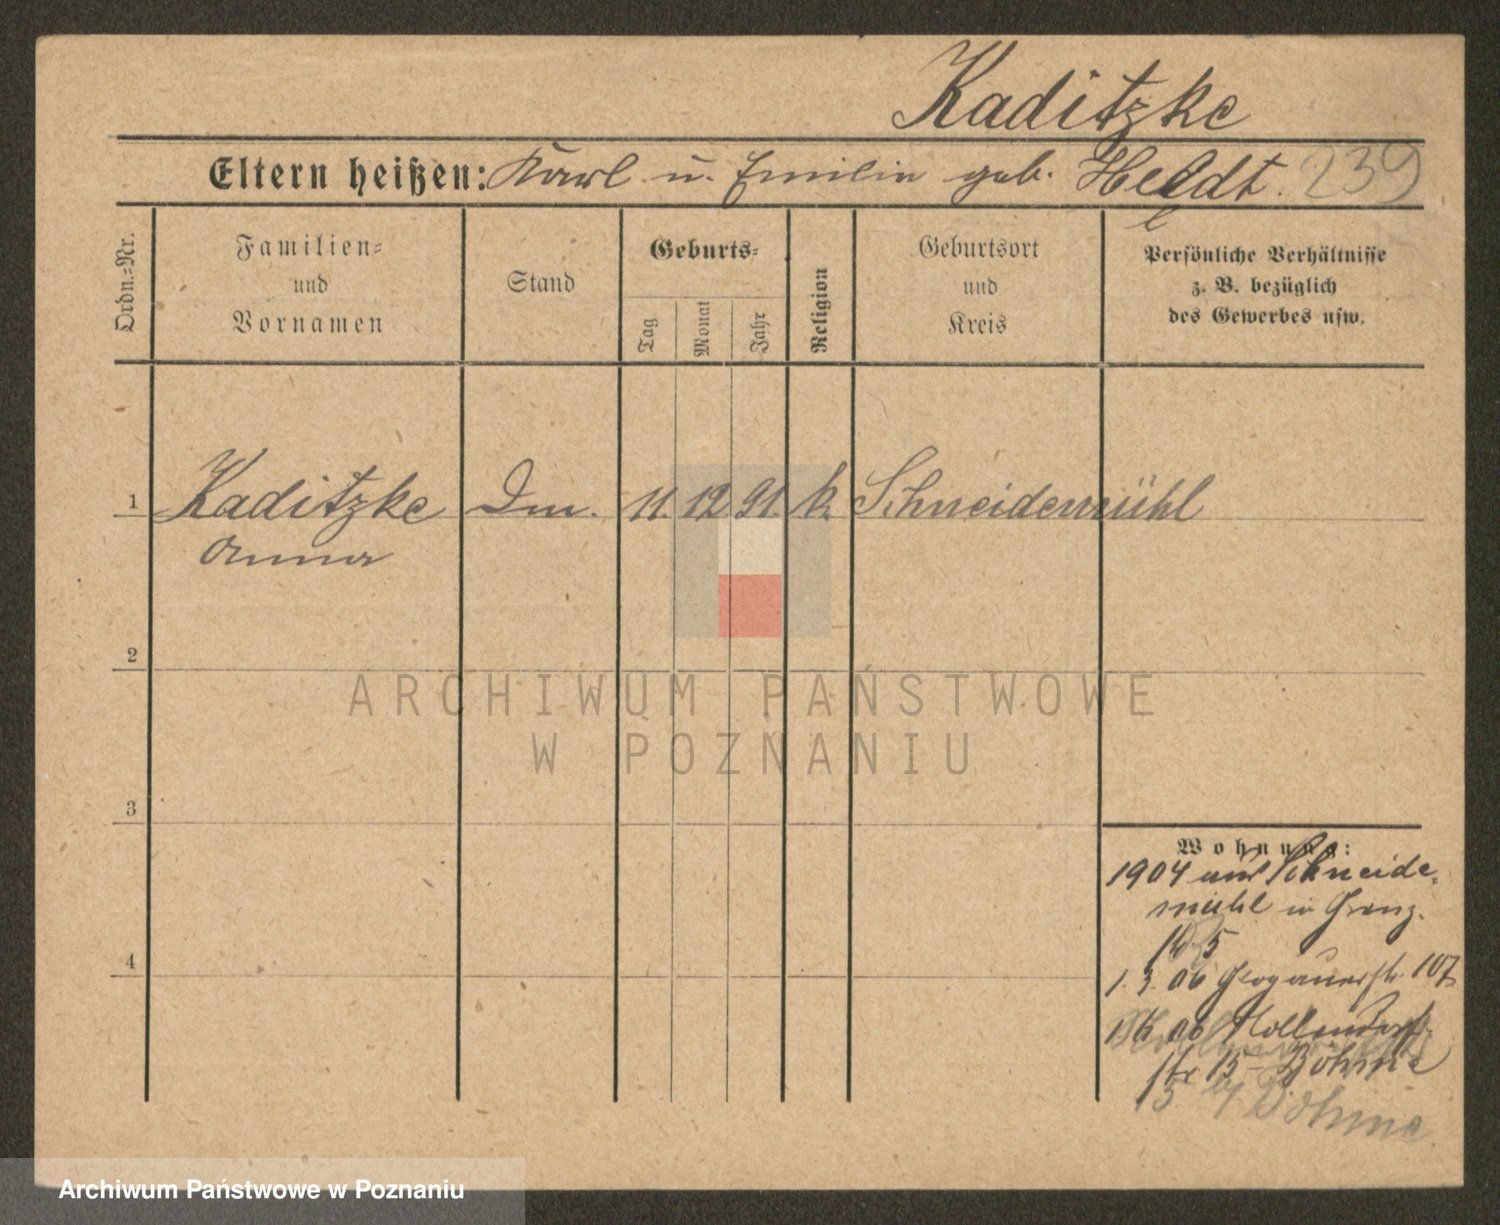 Kaditzke
Eltern heißen: Karl u. Emilie geb. Heldt. 239
Ordn.=Nr.
Familien=
und
Vornamen
Stand
Geburts=
Tag
Monat
Jahr
Religion
Geburtsort
und
Kreis
Persönliche Verhältnisse
z. B. bezüglich
des Gewerbes usw.
1 Kaditzke Dm. 11. 12. 91. k. Schneidemühl
Anna
2
3
4
ARCHIWUM PAŃSTWOWE
W POZNANIU
Wohnung:
1904 aus Schneide-
mühl in
5
1. 3. 06 Glogauerstr. 107
06
15 Böhme
15 Böhme
Archiwum Państwowe w Poznaniu